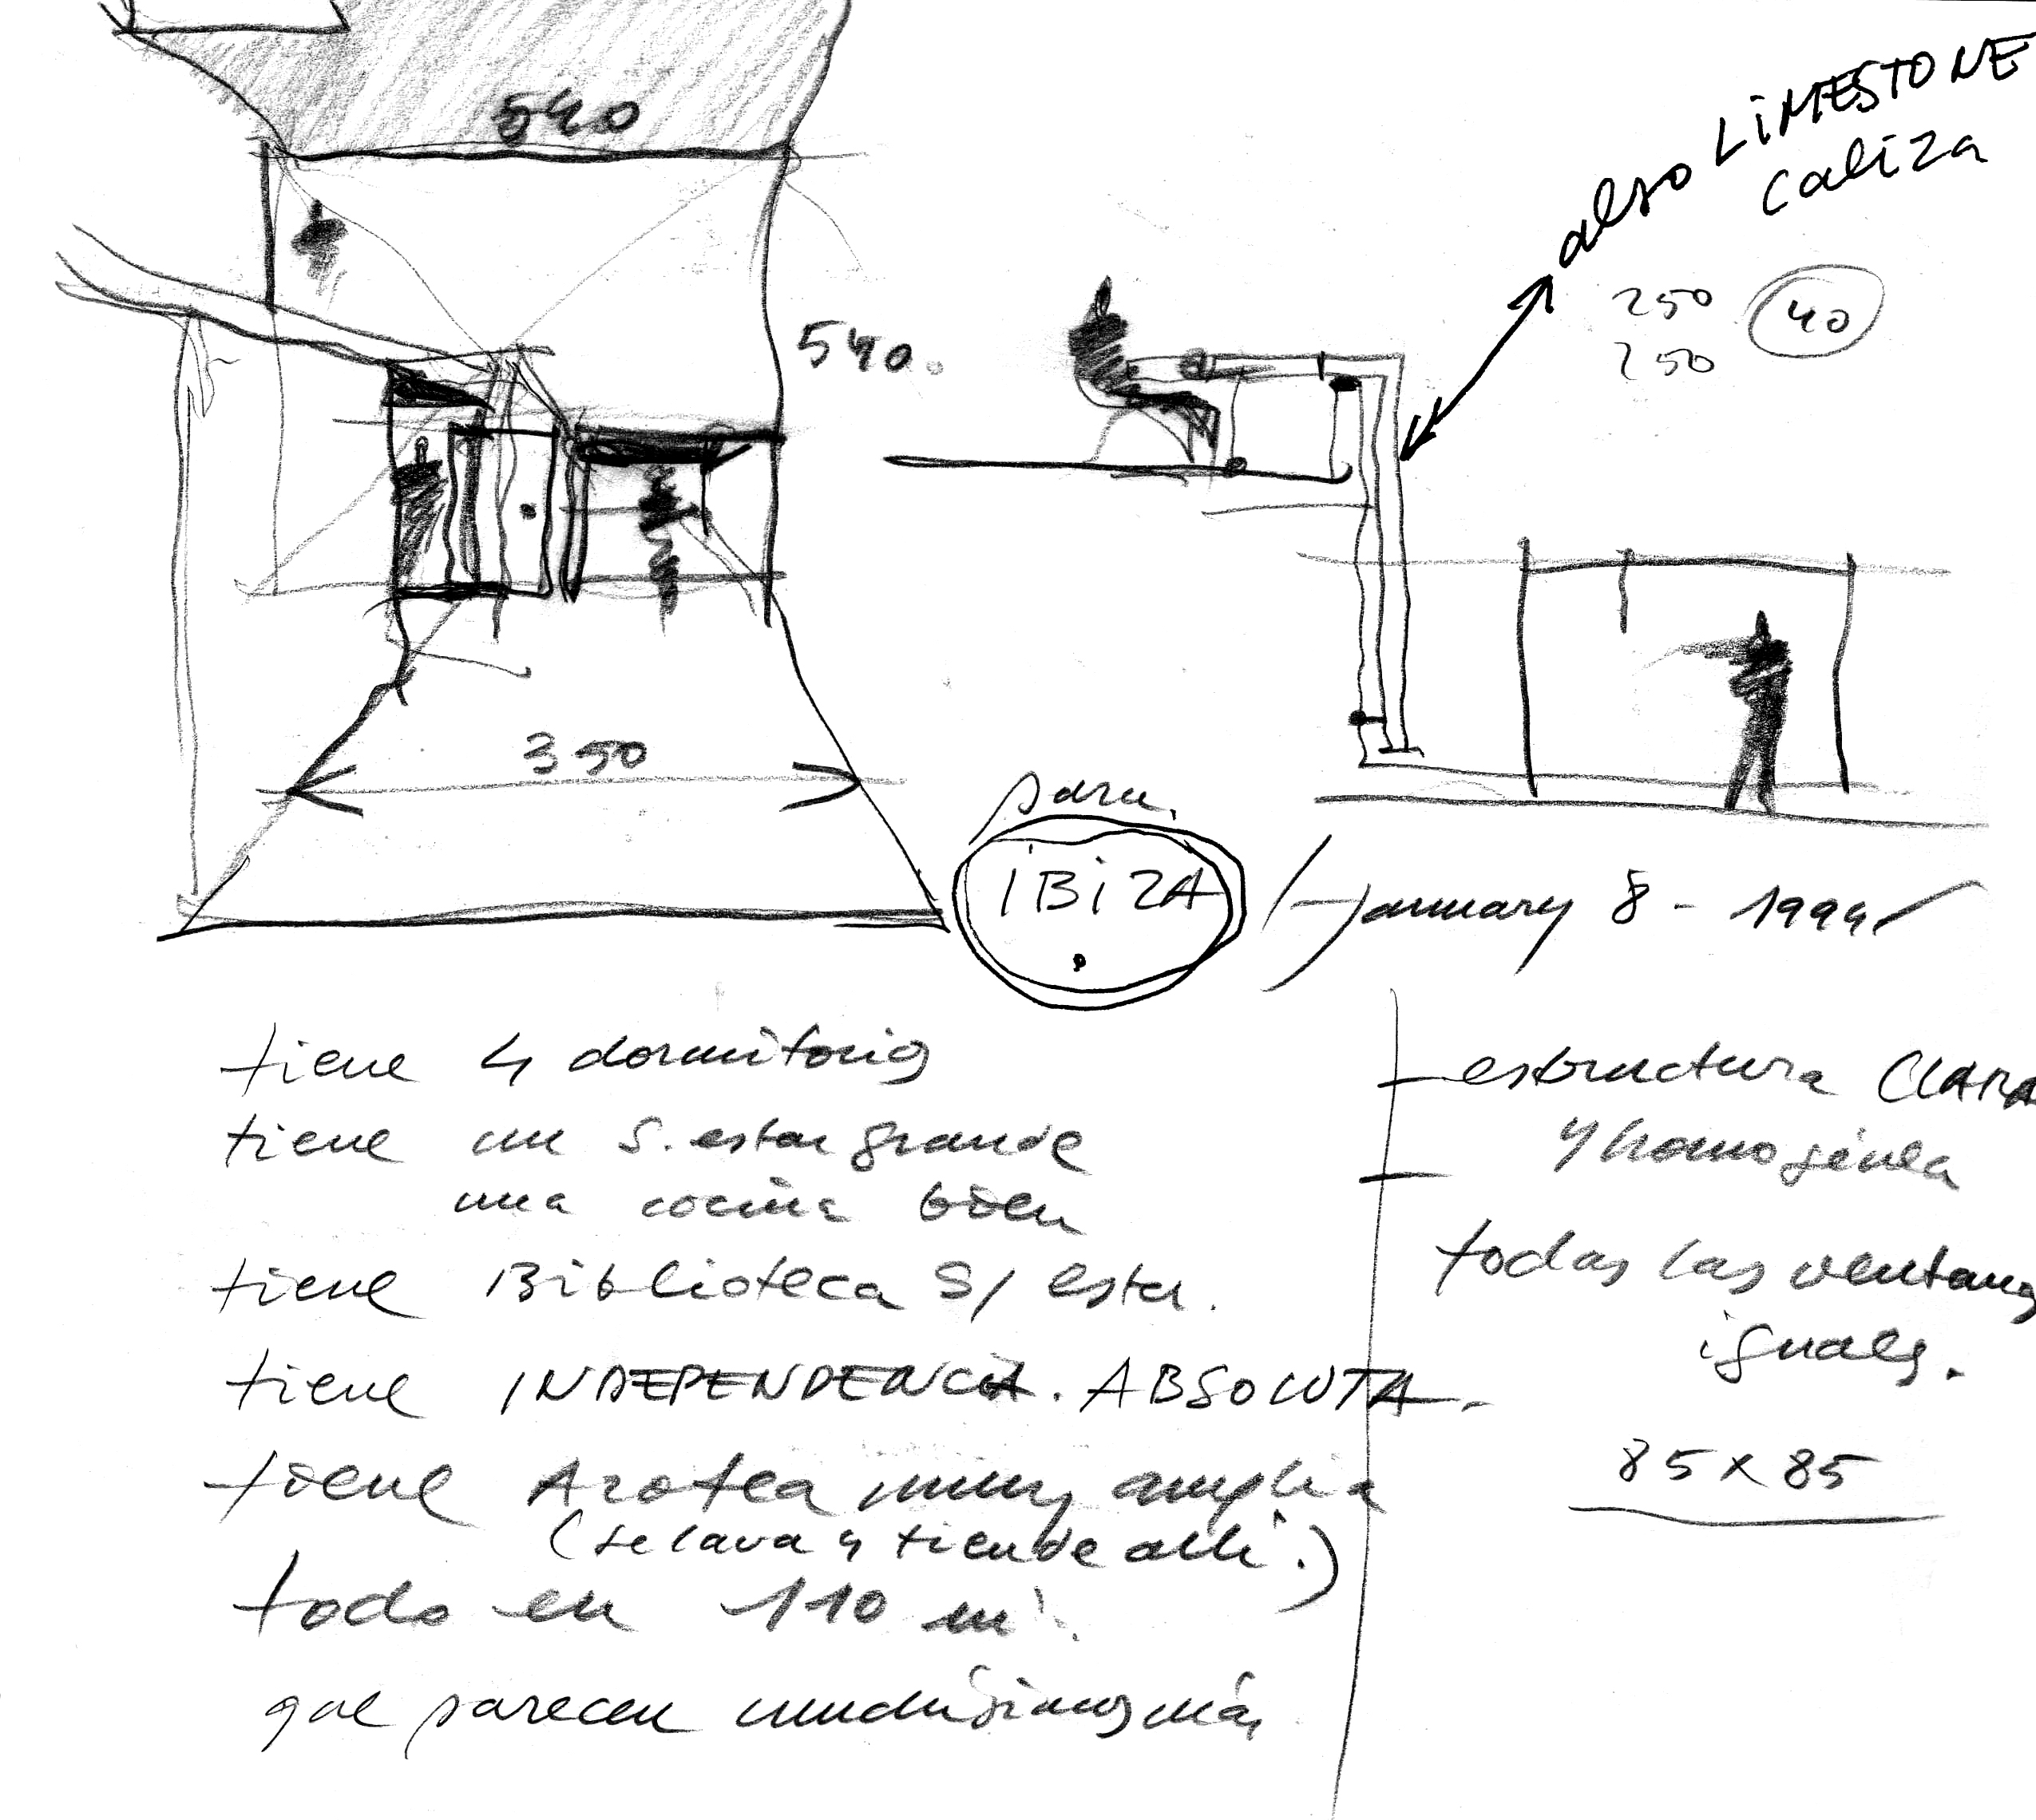 540
also LiMESTONE
caliza
250
250
40
540.
350
para
IBiZA
/January 8 - 1994/
tiene 4 dormitorios
tiene un S. estar grande
una cocina bien
tiene Biblioteca S/ estar.
tiene INDEPENDENCiA. ABSOLUTA.
tiene Azotea muy amplia
(se lava y tiende allí.)
todo en 110 m².
que parecen muchísimos más
estructura CLARA
y homogénea
todas las ventanas
iguales.
85 x 85